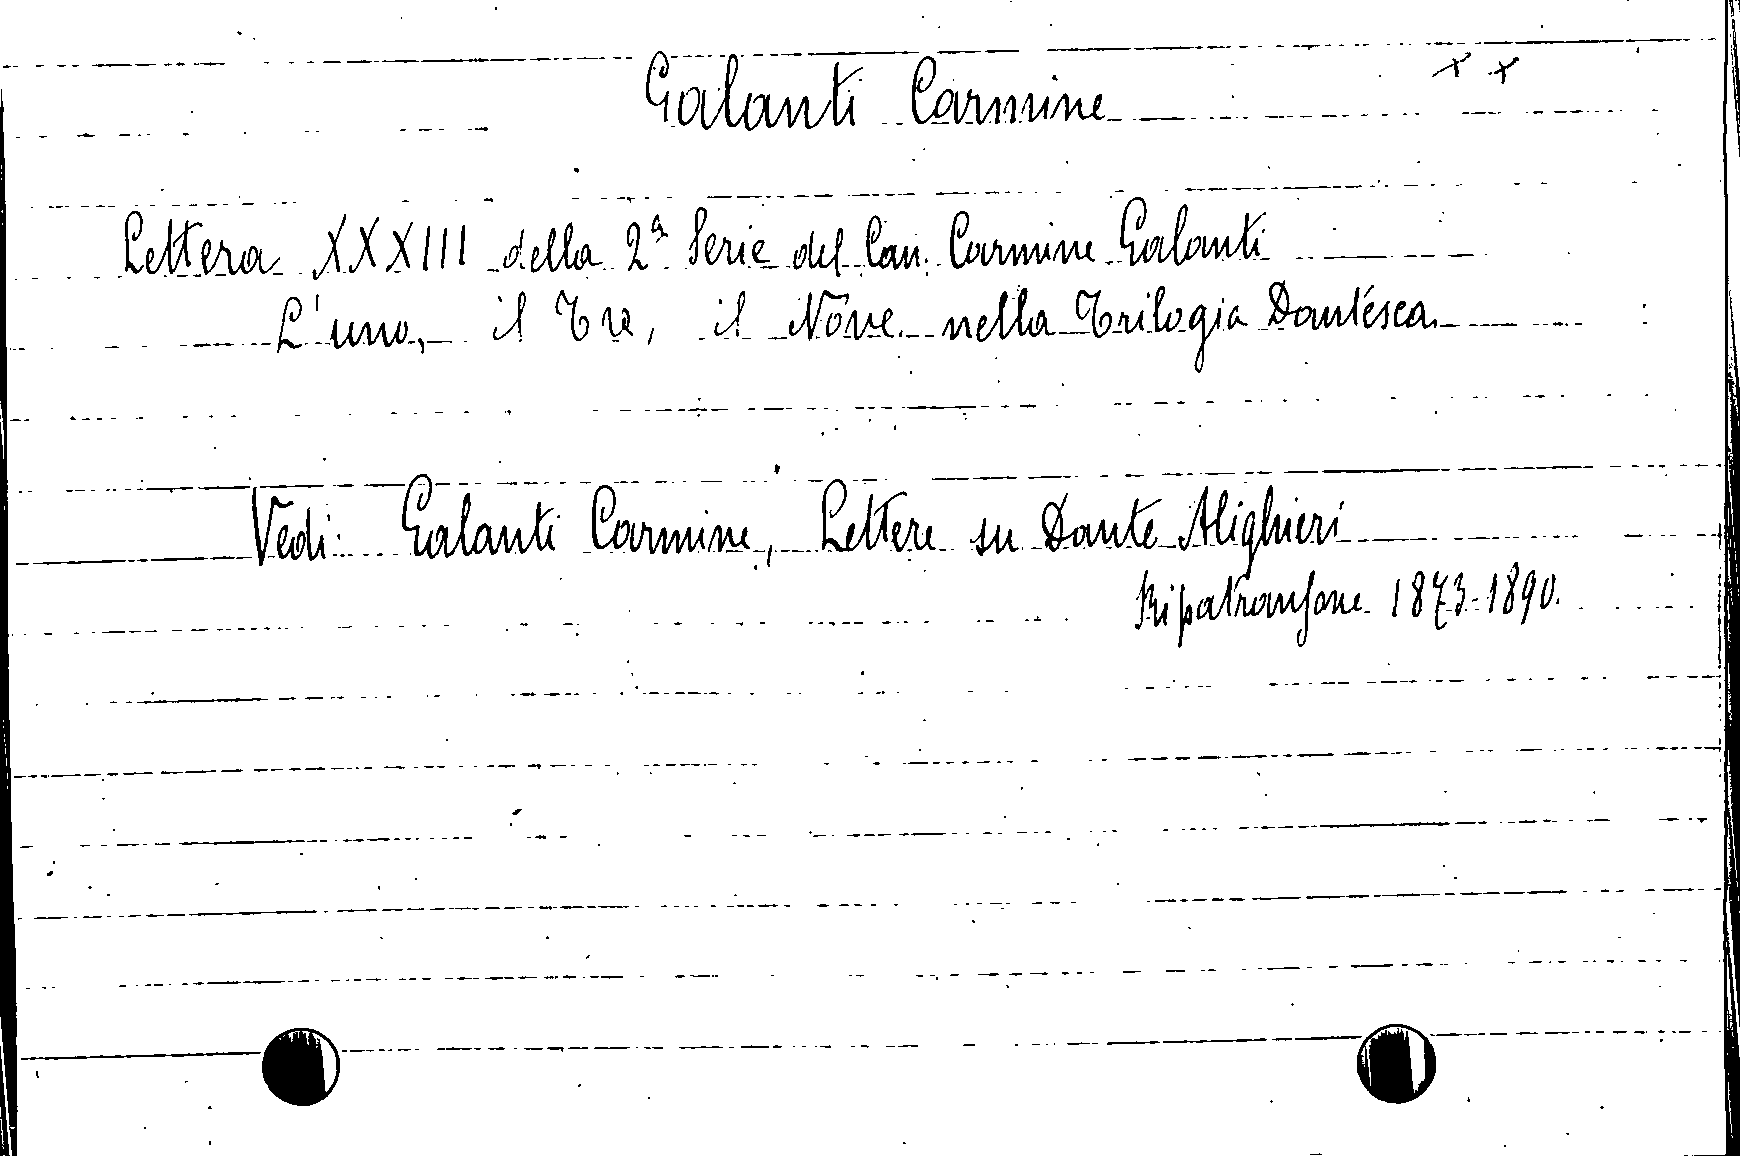 x x
Galanti Carmine
Lettera XXXIII della 2ª Serie del Can. Carmine Galanti
L'uno, il Tre, il Nove nella Trilogia Dantesca.
Vedi: Galanti Carmine, Lettere su Dante Alighieri
Ripatransone 1873-1890.